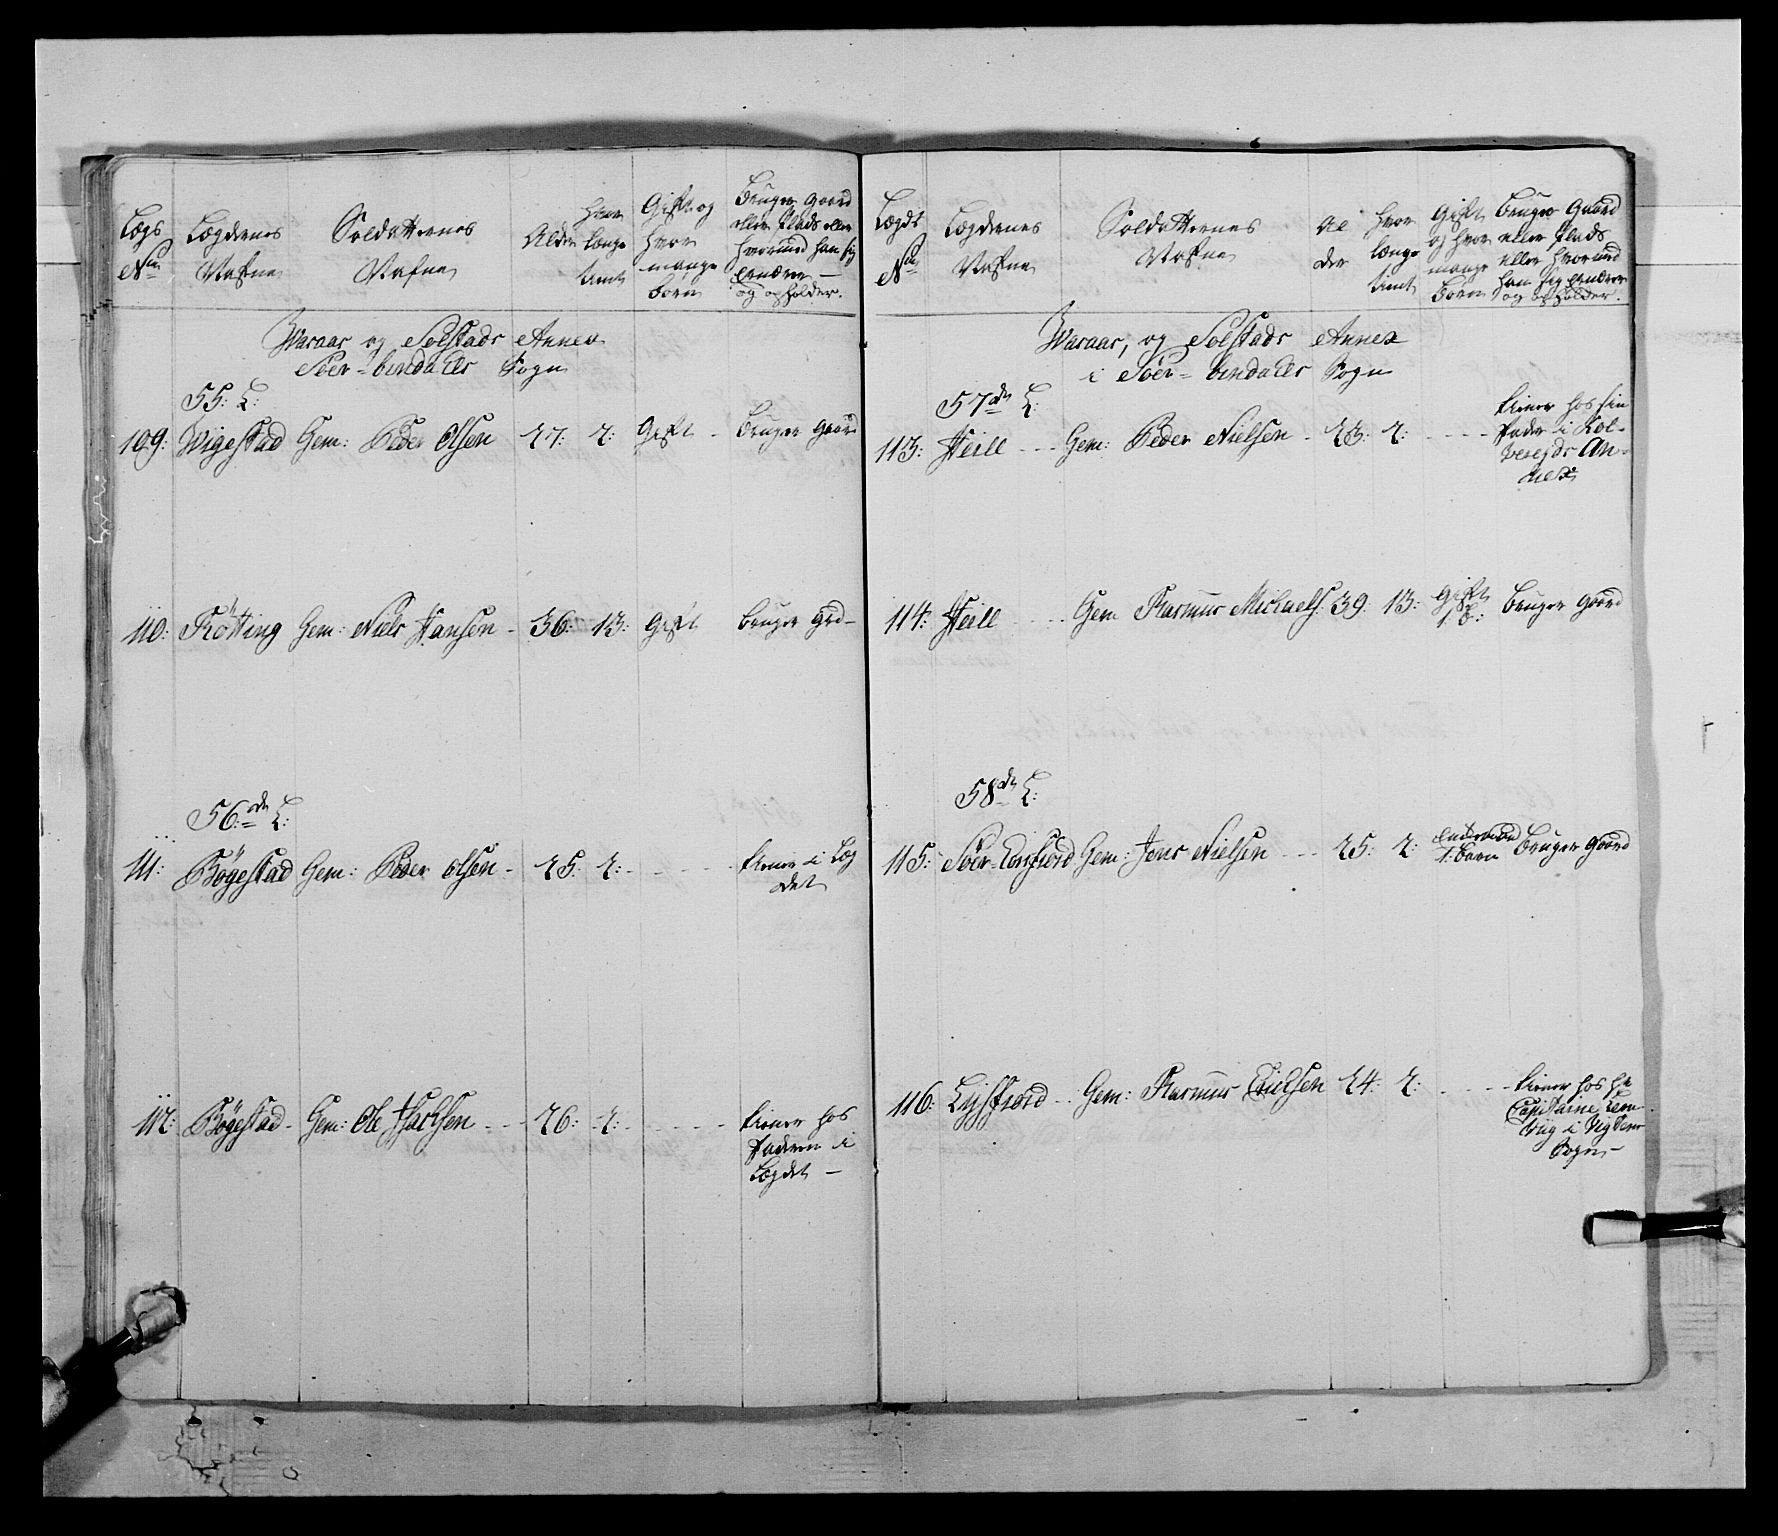 Lægs No
Lægdernes Nafne
Soldatternes Nafne
Alder
Hvor Længe tient
Gift og hvor mange børn
Bruger gaard
eller Plads eller
hvormed han sig
ernærer —
og opholder.
Waraas og Solstads Annex
Søer-bindalls Sogn
55: L:
109: Wigestad Gem: Peder Olsen 27: 2: Gift - Bruger gaard
110: Røtting Gem: Niels Hansen - 36: 13: Gift bruger grd-
56de L:
111: Bøgestad Gem: Peder Olsen - 25: 2: - - - - tiener i Læg
det
112: Bøgestad - Gem: Ole Isachsen - - - 26: 2: - - - - tiener hos
faderen i
Lægdet —
Lægdt No
Lægdernes Nafne
Soldatternes Nafne
Al der
Hvor længe tient
Gift og hvor mange Børn
Bruger Gaard
eller plads
eller hvormed
han sig ernærer
og opholder.
Waraas, og Solstads Annex
i Søer-bindalls Sogn
57de L:
113: Heill - - - Gem: Peder Nielsen - 23: 2: - - - - tiener hos sin
fader i Kol-
vereids An-
nex
114: Heill - - - - Gem Rasmus Michaels: 39: 13: Gift
1 b: bruger gaard
58de L:
115: Søer- Gem: Jens Nielsen - - - 25: 2: Enkemand
1 barn bruger gaard
116: Lysfiord - - Gem: Rasmus 24: 2: - - - - tiener hos Hr
Capitaine Lem-
vig i
Sogn —